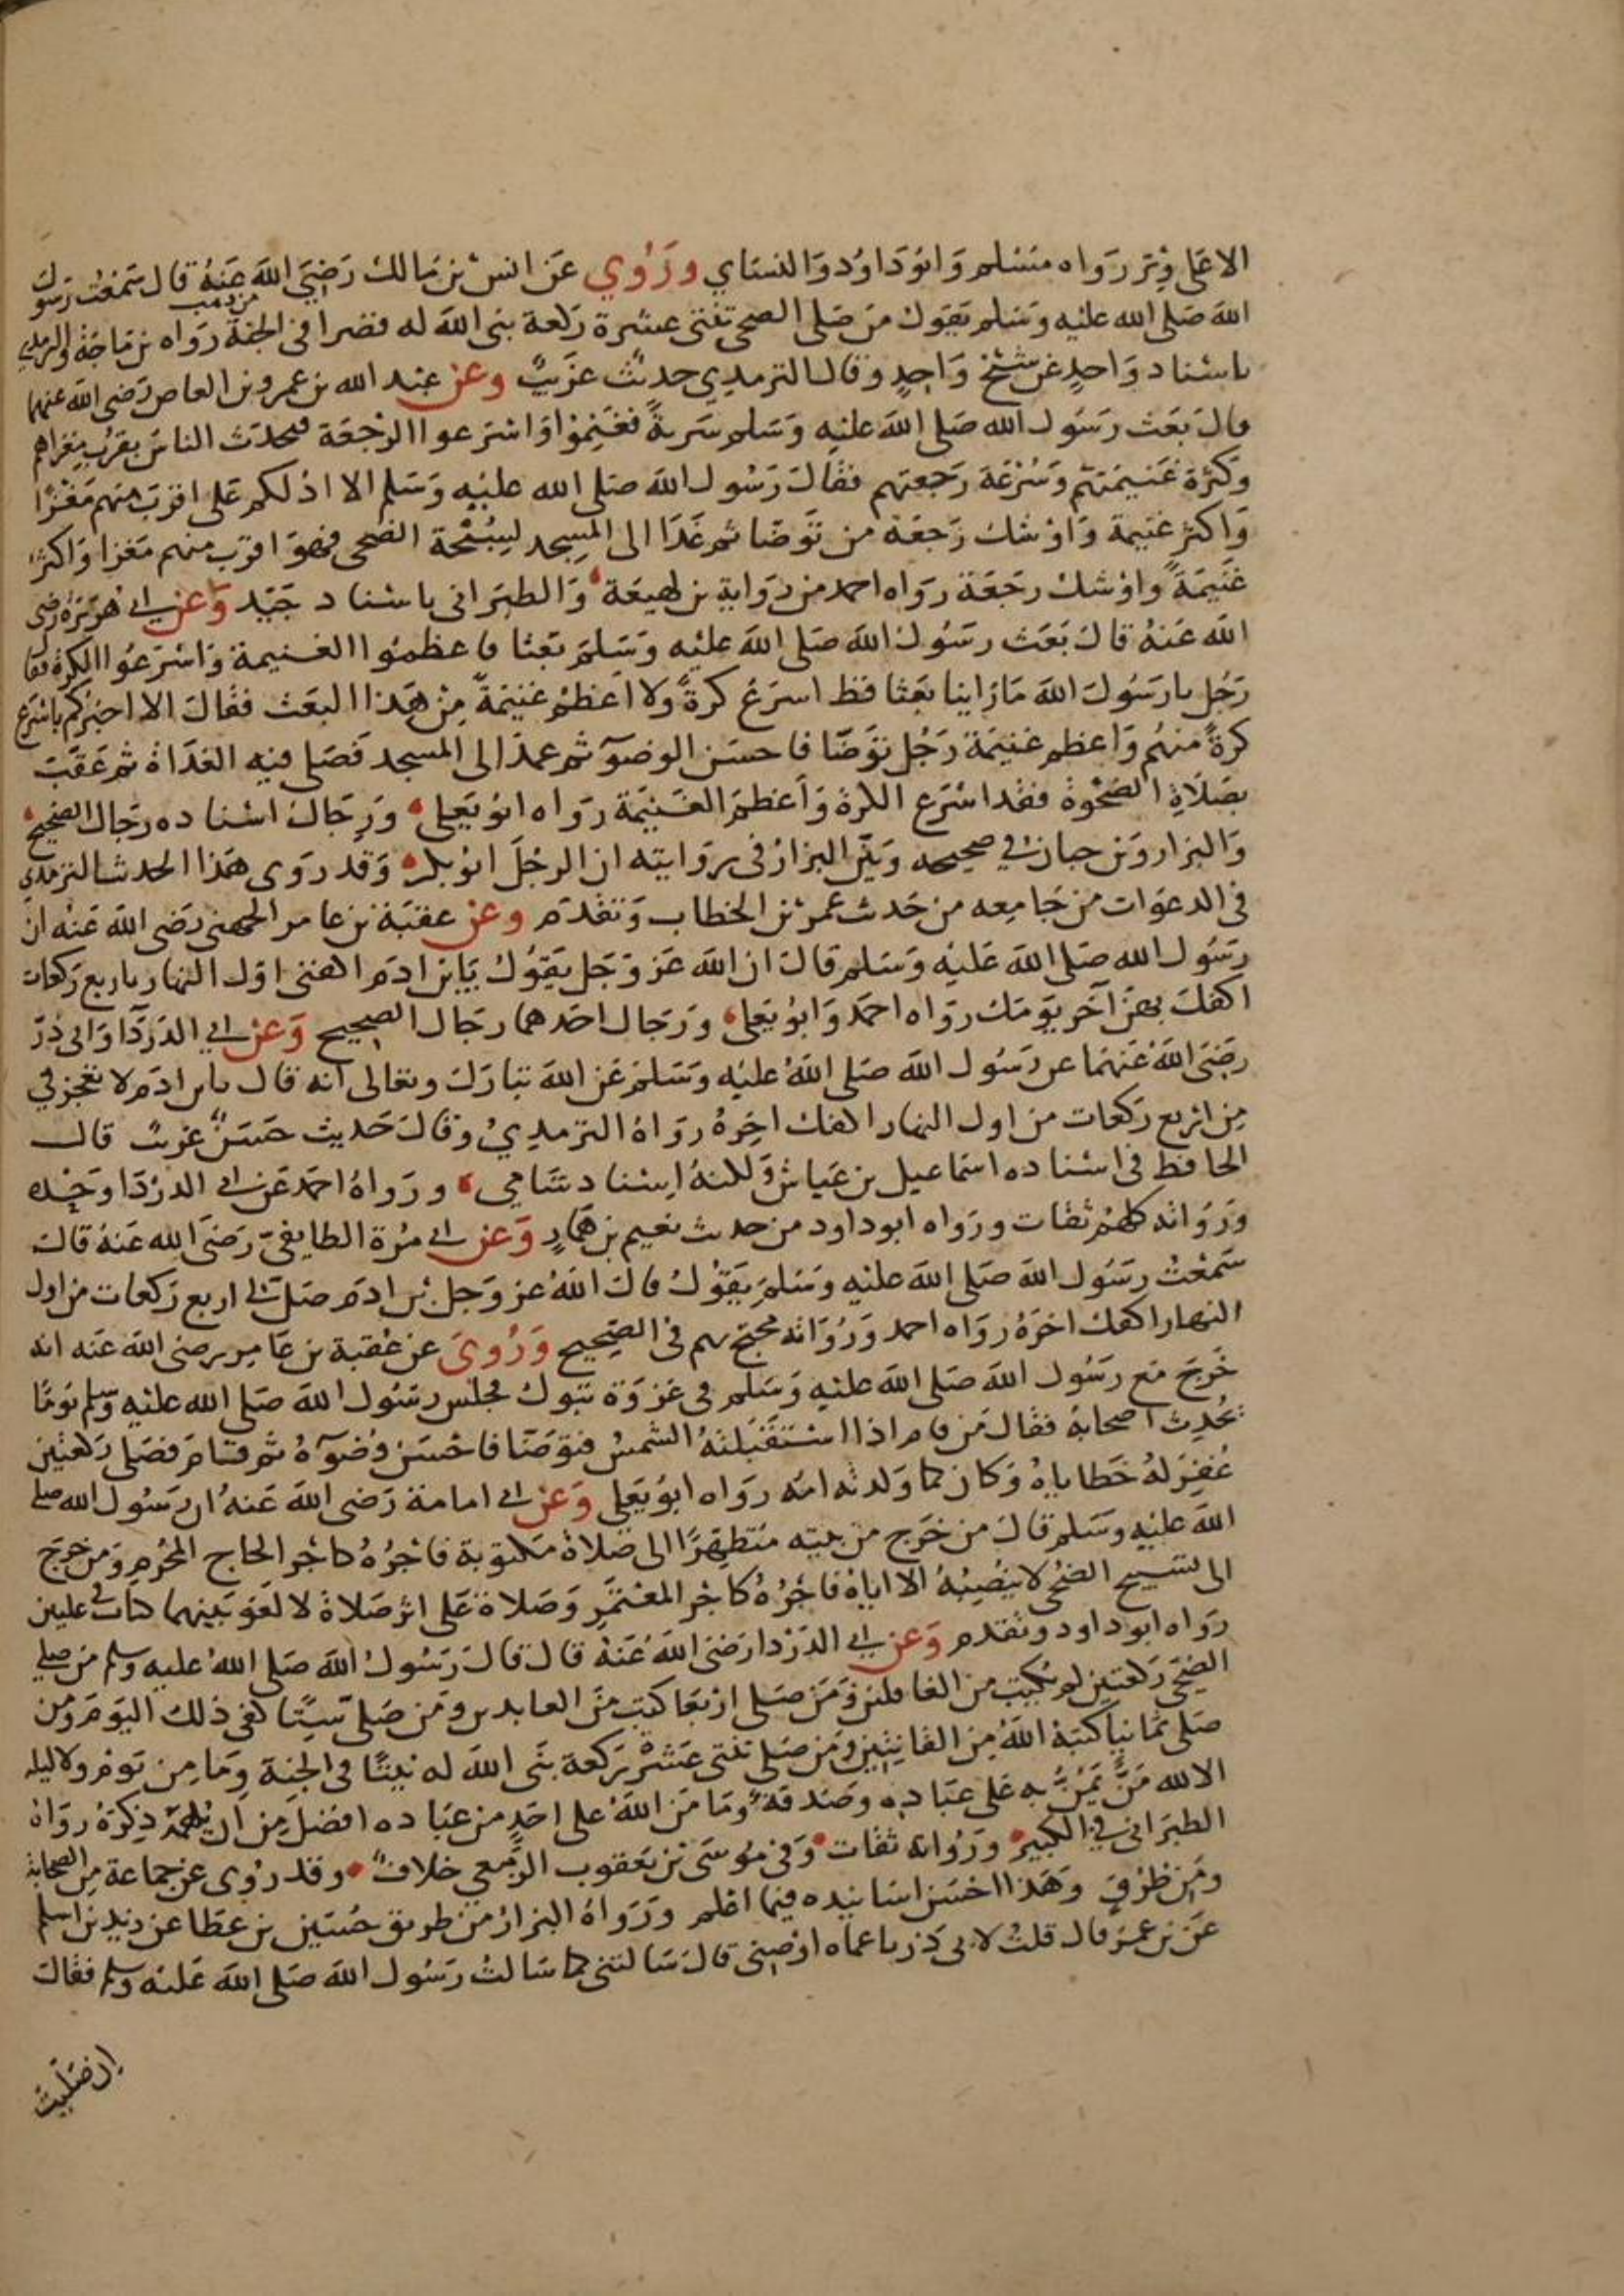 الا على وتر رواه مسلم وابو داود والنساي وروي عن انس بن مالك رضي الله عنه قال سمعت رسول
الله صلى الله عليه وسلم يقول من صلى الضحى ثنتى عشرة ركعة بنى الله له قصرا في الجنة من ذهب رواه بن ماجة والترمذي
باسناد واحد عن شيخ واحد وقال الترمذي حديث غريب وعن عبد الله بن عمرو بن العاص رضى الله عنهما
قال بعث رسول الله صلى الله عليه وسلم سرية فغنموا واسرعوا الرجعة فتحدث الناس بقرب مغزاهم
وكثرة غنيمتهم وسرعة رجعتهم فقال رسول الله صلى الله عليه وسلم الا ادلكم على اقرب منهم مغزا
واكثر غنيمة واوشك رجعة من توضا ثم غدا الى المسجد لسبحة الضحى فهو اقرب منهم مغزا واكثر
غنيمة واوشك رجعة رواه احمد من رواية بن لهيعة والطبرانى باسناد جيد وعن ابي هريرة رضى
الله عنه قال بعث رسول الله صلى الله عليه وسلم بعثا فاعظموا الغنيمة واسرعوا الكرة فقا
رجل يا رسول الله ما راينا بعثا قط اسرع كرة ولا اعظم غنيمة من هذا البعث فقال الا اخبركم باسرع
كرة منهم واعظم غنيمة رجل توضا فاحسن الوضوء ثم عمد الى المسجد فصلى فيه الغداة ثم عقب
بصلاة الضحوة فقد اسرع الكرة واعظم الغنيمة رواه ابو يعلى ورجال اسناده رجال الصحيح
والبزار وبن حبان في صحيحه وبين البزار في روايته ان الرجل ابو بكر وقد روى هذا الحديث الترمذي
في الدعوات من جامعه من حديث عمر بن الخطاب وتقدم وعن عقبة بن عامر الجهنى رضى الله عنه ان
رسول الله صلى الله عليه وسلم قال ان الله عز وجل يقول يا بن ادم اكفنى اول النهار باربع ركعات
اكفك بهن آخر يومك رواه احمد وابو يعلى ورجال احدهما رجال الصحيح وعن ابي الدردآ وابى ذر
رضى الله عنهما عن رسول الله صلى الله عليه وسلم عن الله تبارك وتعالى انه قال يا بن ادم لا تعجزني
من اربع ركعات من اول النهار اكفك اخره رواه الترمذي وقال حديث حسن غريب قال
الحافظ في اسناده اسماعيل بن عياش ولكنه اسناد شامي ورواه احمد عن ابي الدردا وحده
ورواته كلهم ثقات ورواه ابو داود من حديث نعيم بن همار وعن ابي مرة الطايفي رضى الله عنه قال
سمعت رسول الله صلى الله عليه وسلم يقول قال الله عز وجل بن ادم صل لي اربع ركعات من اول
النهار اكفك اخره رواه احمد ورواته محتج بهم في الصحيح وروى عن عقبة بن عامر رضى الله عنه انه
خرج مع رسول الله صلى الله عليه وسلم في غزوة تبوك فجلس رسول الله صلى الله عليه وسلم يوما
يحدث اصحابه فقال من قام اذا استقبلته الشمس فتوضا فاحسن وضوءه ثم قام فصلى ركعتين
غفر له خطاياه وكان كما ولدته امه رواه ابو يعلى وعن ابي امامة رضى الله عنه ان رسول الله صلى
الله عليه وسلم قال من خرج من بيته متطهرا الى صلاة مكتوبة فاجره كاجر الحاج المحرم ومن خرج
الى تسبيح الضحى لا ينصبه الا اياه فاجره كاجر المعتمر وصلاة على اثر صلاة لا لغو بينهما كتاب في عليين
رواه ابو داود وتقدم وعن ابي الدردا رضى الله عنه قال قال رسول الله صلى الله عليه وسلم من صلى
الضحى ركعتين لم يكتب من الغافلين ومن صلى اربعا كتب من العابدين ومن صلى ستا كفى ذلك اليوم ومن
صلى ثمانيا كتبه الله من القانتين ومن صلى ثنتى عشرة ركعة بنى الله له بيتا في الجنة وما من يوم ولا ليلة
الا لله من يمن به على عباده وصدقة وما من الله على احد من عباده افضل من ان يلهمه ذكره رواه
الطبرانى في الكبير ورواته ثقات وفي موسى بن يعقوب الزمعي خلاف وقد روى عن جماعة من الصحابة
ومن طرق وهذا احسن اسانيده فيما اعلم ورواه البزار من طريق حسين بن عطا عن زيد بن اسلم
عن بن عمر قال قلت لابى ذر يا عماه اوصنى قال سالتنى كما سالت رسول الله صلى الله عليه وسلم فقال
ان صليت